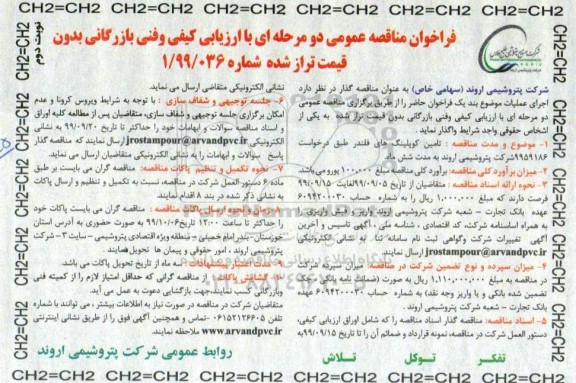 CH2=CH2 CH2=CH2 CH2=CH2 CH2=CH2 CH2=CH2 CH2=CH2
نوبت دوم
فراخوان مناقصه عمومی دو مرحله ای با ارزیابی کیفی وفنی بازرگانی بدون
قیمت تراز شده شماره ۱/۹۹/۰۳۶
شرکت پتروشیمی اروند (سهامی خاص) به عنوان مناقصه گذار در نظر دارد
اجرای عملیات موضوع بند یک فراخوان حاضر را از طریق برگزاری مناقصه عمومی
دو مرحله ای با ارزیابی کیفی وفنی بازرگانی بدون قیمت تراز شده به یکی از
اشخاص حقوقی واجد شرایط واگذار نماید.
۱- موضوع و مدت مناقصه : تامین کوپلینگ های فلندر طبق درخواست
۹۹۵۹۱۸۶شرکت پتروشیمی اروند به مدت شش ماه
۲- میزان برآورد کلی مناقصه: برآورد کلی مناقصه مبلغ ۱۰۰,۰۰۰ یورو می باشد.
۳- نحوه ارائه اسناد مناقصه : متقاضیان از تاریخ ۹۹/۰۹/۰۵لغایت ۹۹/۰۹/۱۵
فرصت دارند که مبلغ ۱,۰۰۰,۰۰۰ ریال را به شماره حساب
عهده بانک تجارت - شعبه شرکت پتروشیمی اروند واریز و فیش واریزی را
به همراه اساسنامه شرکت، کد اقتصادی ، شناسه ملی ، آگهی تاسیس و آخرین
آگهی تغییرات شرکت وگواهی ثبت نام سامانه ثنا به نشانی الکترونیکی
jrostampour@arvandpvc.ir ارسال نمایند.
۴- میزان سپرده و نوع تضمین شرکت در مناقصه: میزان سپرده شرکت
در مناقصه به مبلغ ۱,۱۱۰,۰۰۰,۰۰۰ ریال به صورت (ضمانت نامه بانکی یا چک
تضمین شده بانکی و یا واریز وجه نقد) به شماره حساب ۶۰۹۴۲۰۰۰۳۰ عهده
بانک تجارت - شعبه شرکت پتروشیمی اروند .
۵- اسناد مناقصه: مناقصه گذار اسناد مناقصه را که شامل اوراق ارزیابی کیفی،
دستور العمل شرکت در مناقصه، نمونه قرارداد و ضمائم آن را تا تاریخ ۹۹/۰۹/۱۵به
نشانی الکترونیکی متقاضی ارسال می نماید.
۶- جلسه توجیهی و شفاف سازی : با توجه به شرایط ویروس کرونا و عدم
امکان برگزاری جلسه توجیهی و شفاف سازی، متقاضیان پس از مطالعه کلیه اوراق
و اسناد مناقصه سوالات و ابهامات خود را حداکثر تا تاریخ ۹۹/۰۹/۲۰ به نشانی
الکترونیکی jrostampour@arvandpvc.ir ارسال نمایند که مناقصه گذار
پاسخ سوالات و ابهامات را به نشانی الکترونیکی متقاضیان ارسال می نماید.
۷- نحوه تکمیل و تنظیم پاکات مناقصه: مناقصه گران می بایست بر طبق
ماده ۶ دستور العمل شرکت در مناقصه، نسبت به تکمیل و تنظیم و ارسال پاکات
به نشانی ذکر شده در بند ۸ اقدام نمایند.
مناقصه گران می بایست پاکات خود
را حداکثر تا ساعت ۱۲:۰۰ تاریخ۹۹/۱۰/۰۶ به صورت حضوری به آدرس استان
خوزستان- بندر امام خمینی - منطقه ویژه اقتصادی پتروشیمی - سایت ۳ - شرکت
پتروشیمی اروند ، امور حقوقی و پیمان ها تحویل نمایند.
مدت اعتبار پیشنهادات: سه ماه از تاریخ تحویل پاکات می باشد.
گشایش پاکات: از مناقصه گرانی که حداقل امتیاز لازم را از کمیته فنی
وبازرگانی کسب نمایند، جهت بازگشایی دعوت به عمل می آید.
متقاضیان شرکت در مناقصه در صورت نیاز به اطلاعات بیشتر ، می توانند با شماره
تلفن ۰۶۱۵۲۱۲۶۶۰۵ -تماس و همچنین آگهی فوق را از طریق نشانی اینترنتی
www.arvandpvc.ir ملاحظه نمایند.
تفکر توکل تلاش
روابط عمومی شرکت پتروشیمی اروند
CH2=CH2 CH2=CH2 CH2=CH2 CH2=CH2 CH2=CH2 CH2=CH2